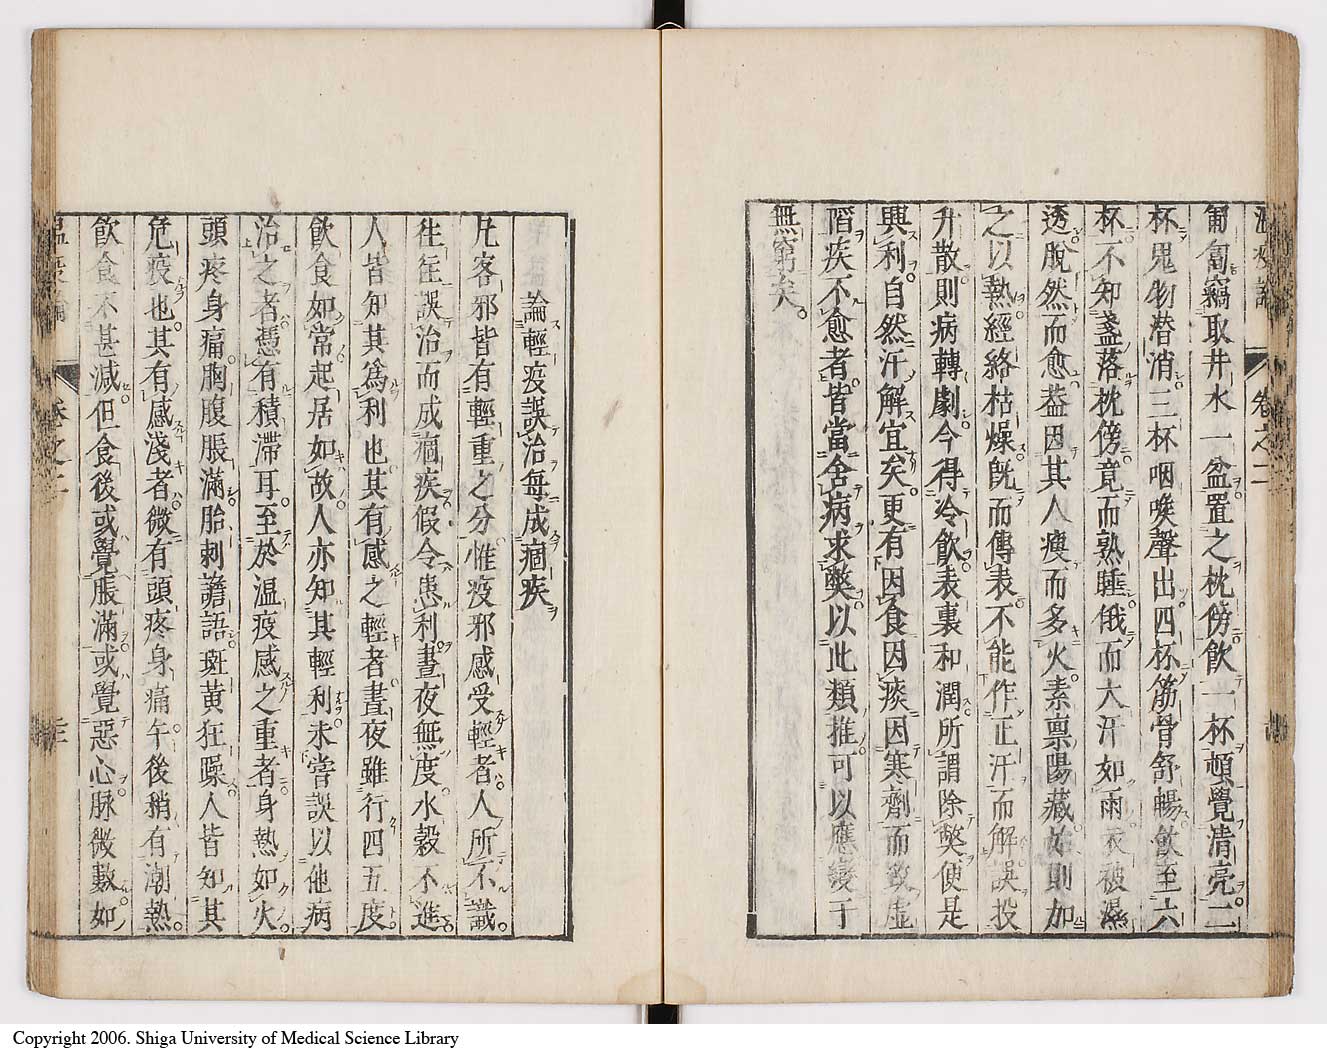 温疫論 卷之二
匍匐竊取井水一盆置之枕傍飲一杯頓覺清亮二
杯鬼物潜消三杯咽喉聲出四杯筋骨舒暢飲至六
杯不知盞落枕傍竟而熟睡俄而大汗如雨衣被濕
透脫然而愈葢因其人瘦而多火素禀陽藏始則加
之以熱經絡枯燥旣而傳表不能作正汗而解誤投
升散則病轉劇今得冷飲表裏和潤所謂除弊便是
興利自然汗解宜矣更有因食因痰因寒劑而致虛
陷疾不愈者皆當舍病求弊以此類推可以應變于
無窮矣
論輕疫誤治每成痼疾
凡客邪皆有輕重之分惟疫邪感受輕者人所不識
往往誤治而成痼疾假令患利晝夜無度水穀不進
人皆知其爲利也其有感之輕者晝夜雖行四五度
飲食如常起居如故人亦知其輕利未嘗談以他病
治之者憑有積滯耳至於温疫感之重者身熱如火
頭疼身痛胸腹脹滿胎刺譫語斑黃狂躁人皆知其
危疫也其有感淺者微有頭疼身痛午後稍有潮熱
飲食不甚減但食後或覺脹滿或覺惡心脉微數如
温疫論 卷之二 二十三
Copyright 2006. Shiga University of Medical Science Library